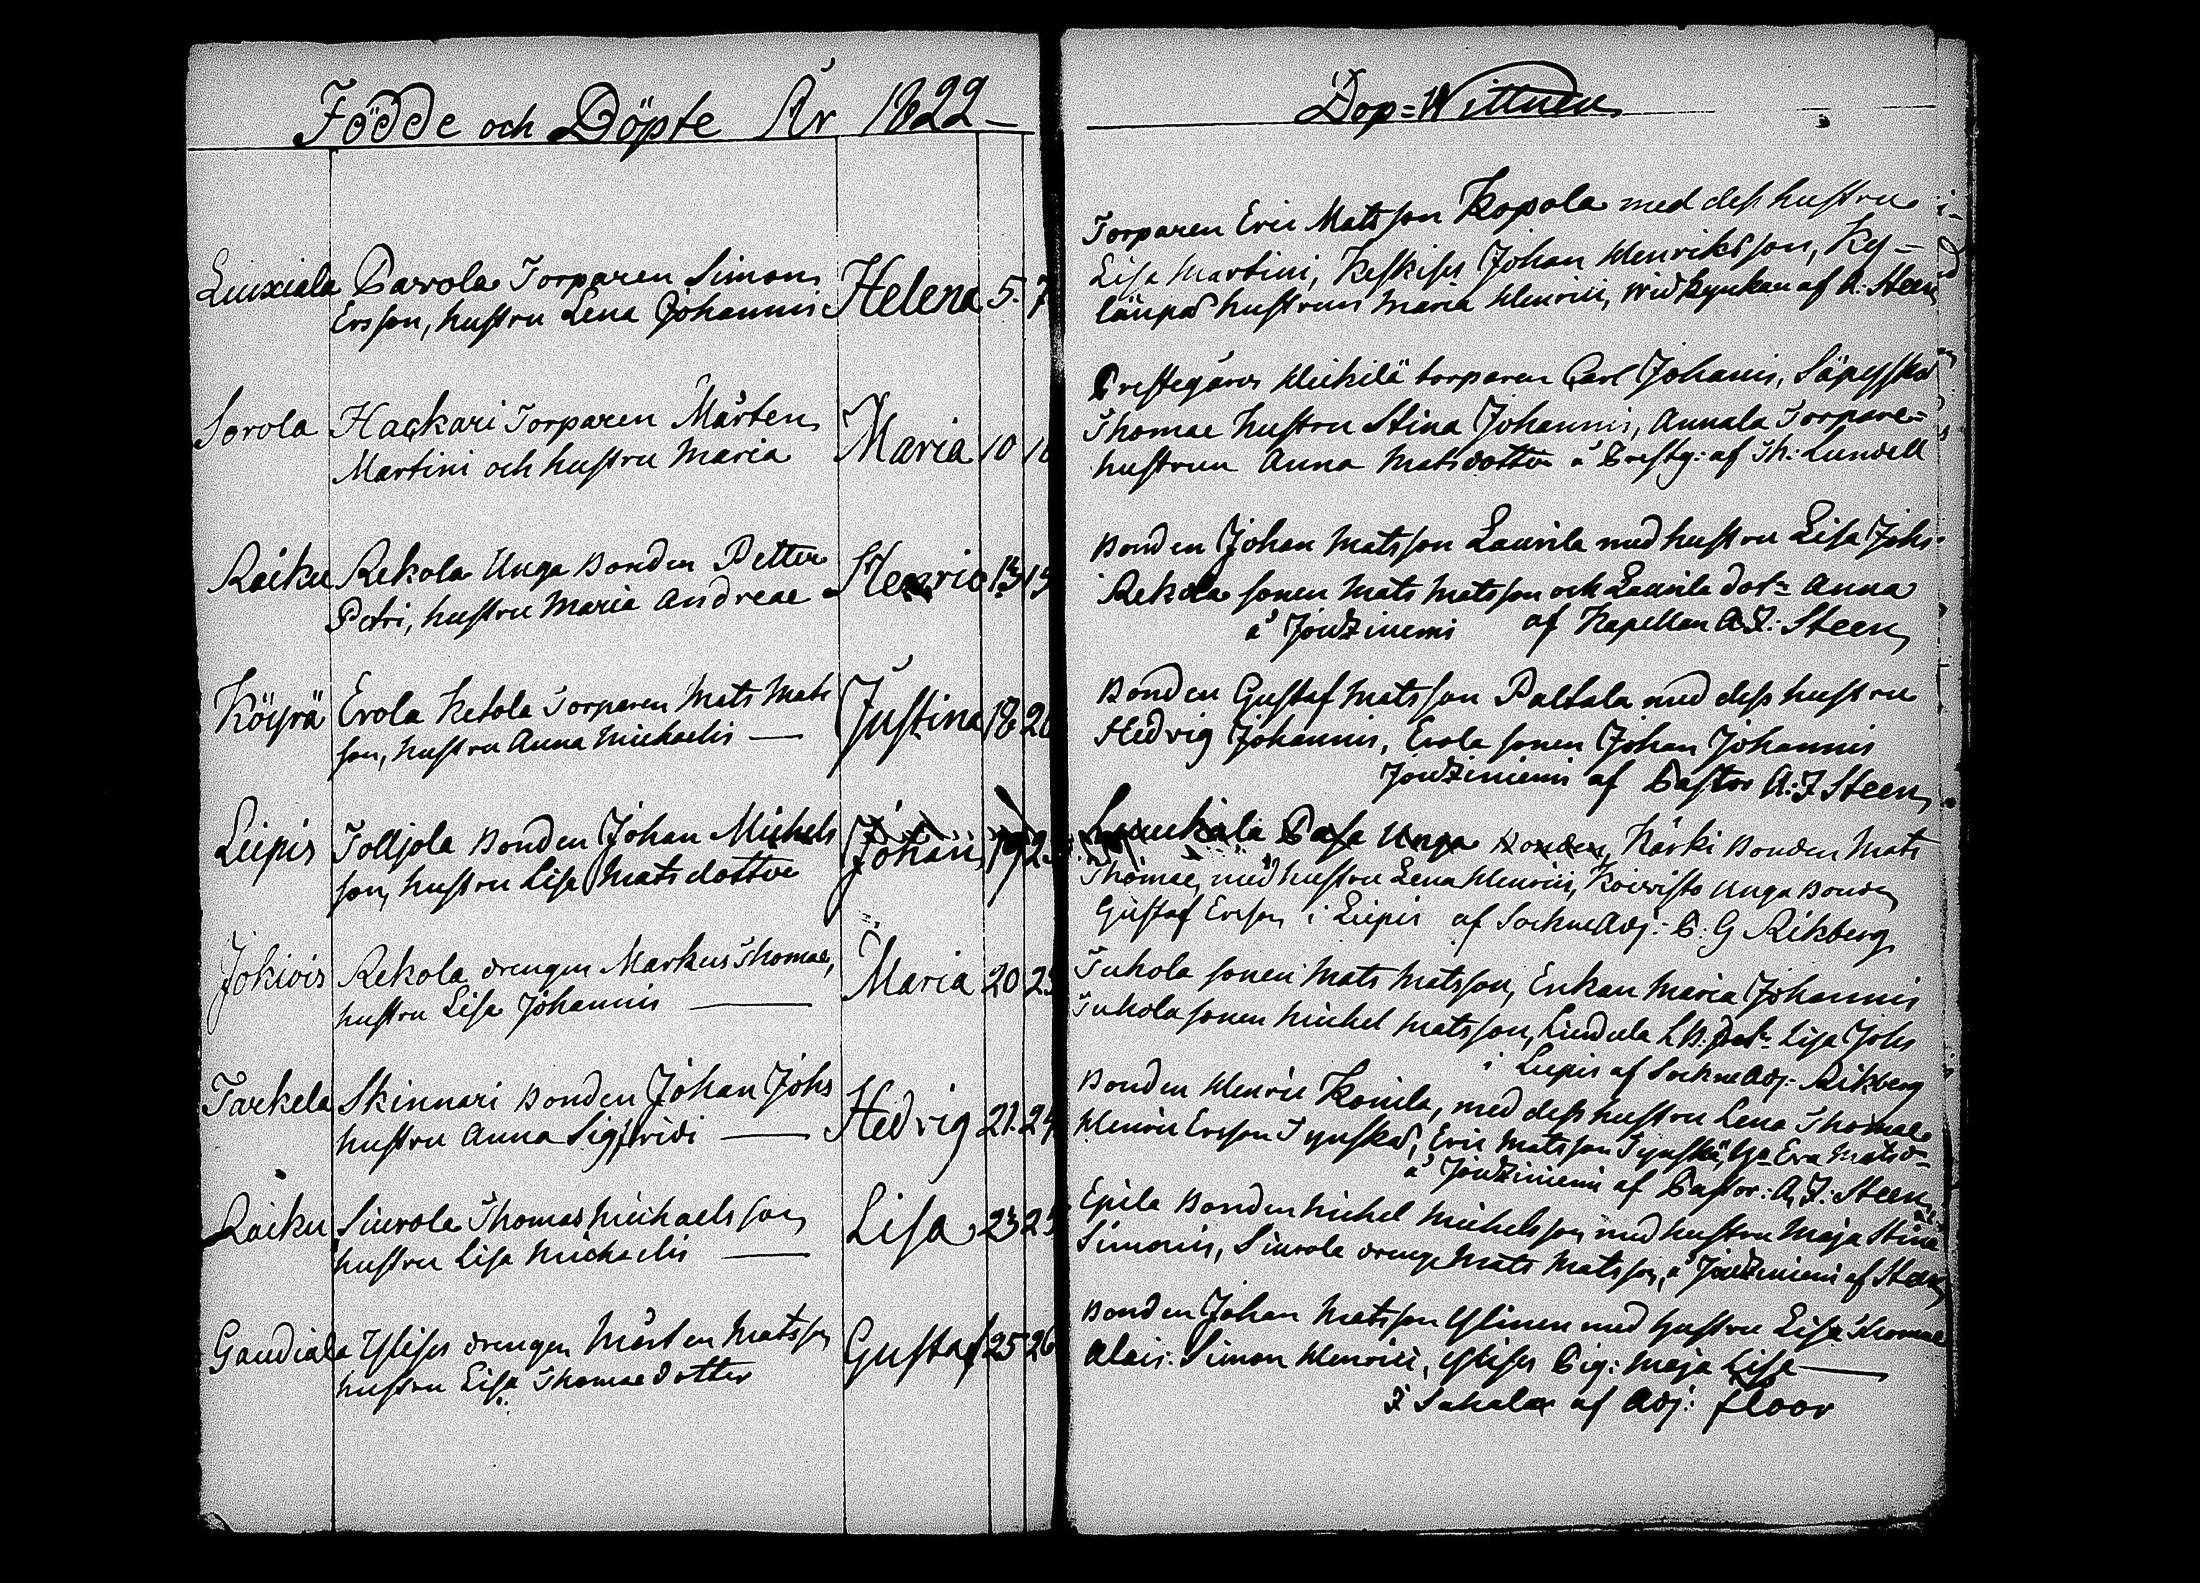 Födde och Döpte År 1822
Liuxiala Pavola Torparen Simon Helena 5. 7
Ersson, hustru Lena Johannis
Sorola Hackari Torparen Mårten Maria 10
Martini och hustru Maria
Raiku Rekola Unga Bonden Petter Henric 13
Petri, hustru Maria Andreae
Köyrä Erola Ketola Torparen Mats Mats Justina 18
son, hustru Anna Michaelis
Liepis Tolljola Bonden Johan Michels Johan
son, hustru Lisa Matsdotter
Jokiois Rekola drengen Markus Thomae, Maria 20
hustru Lisa Johannis
Tarkela Skinnari Bonden Johan Johs Hedvig 21. 24
hustru Anna Sigfridi
Raiku Siurola Thomas Michaelsson Lisa 23
hustru Lisa Michaelis
Gaudiala Ylises drengen Mårten Matsson Gustaf 25 26
hustru Lisa Thomaedotter
Dop=Wittnen
Torparen Eric Matsson Kopola med dess hustru
Lisa Martini, Keskises Johan Henriksson, Ky=
läupas hustrun Maria Henrici, wid kyrkan af A: Steen
Prestegårds Heikilä torparen Carl Johanis,
Thomae hustru Stina Johannis, Annala Torpare=
hustrun Anna Matsdotter å Prestg: af Th: Lundell
Bonden Johan Matsson Laurila med hustru Lisa Johs
Rekola sonen Mats Matsson och Laurila dotr Anna
å Joutziniemi af Kapellan A.J: Steen
Bonden Gustaf Matsson Paltala med dess hustru
Hedvig Johannis, Erola sonen Johan Johannis
Joutziniemi af Pastor A: J Steen
Unga Bonden, Kärki Bonden Mats
Thomae, med hustru Lena Henrici, Koivisto Unga Bonden
Gustaf Ersson i Liepis af SockneAdj: C: G Rikberg
Tuhola sonen Mats Matsson, Enkan Maria Johannis
Tuhola sonen Michel Matsson, Lisa Johs
i Liepis af SockneAdj: Rikberg
Bonden Henric Konila, med dess hustru Lena Thomae
Henric Ersson Tynskas, Eric Matsson Eva Matsd=
å Joutziniemi af Pastor: A. J: Steen
Epila Bonden Michel Michelsson med hustru Maja Stina
Simonis, Siurola dreng Mats Matsson, å Joutziniemi af Steen
Bonden Johan Matsson Ylinen med hustru Lisa Thomae
Alais: Simon Henrici, Ylises Pig: Maja Lisa
i Sahala af Adj: Floor